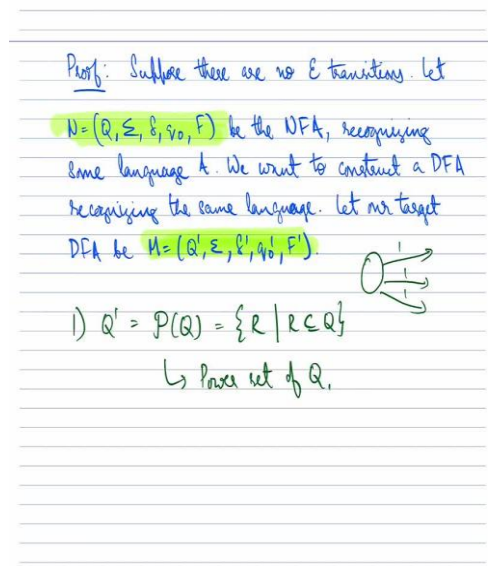 Proof: Suppose there are no ε transitions. Let
N=(Q,Σ,δ,q₀,F) be the NFA, recognizing
some language A. We want to construct a DFA
recognizing the same language. Let our target
DFA be M=(Q',Σ,δ',q₀',F').
1
1
1
1) Q' = P(Q) = {R | R⊆Q}
↳ Power set of Q.